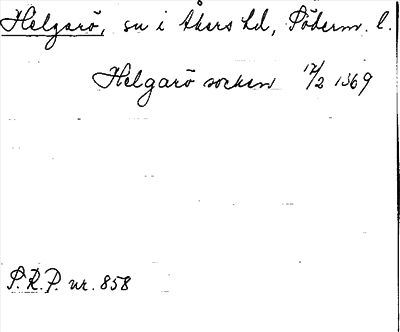 Helgarö, sn i Åkers hd, Söderm. l.
Helgarö socken 12/2 1369
S.R.P. nr. 858